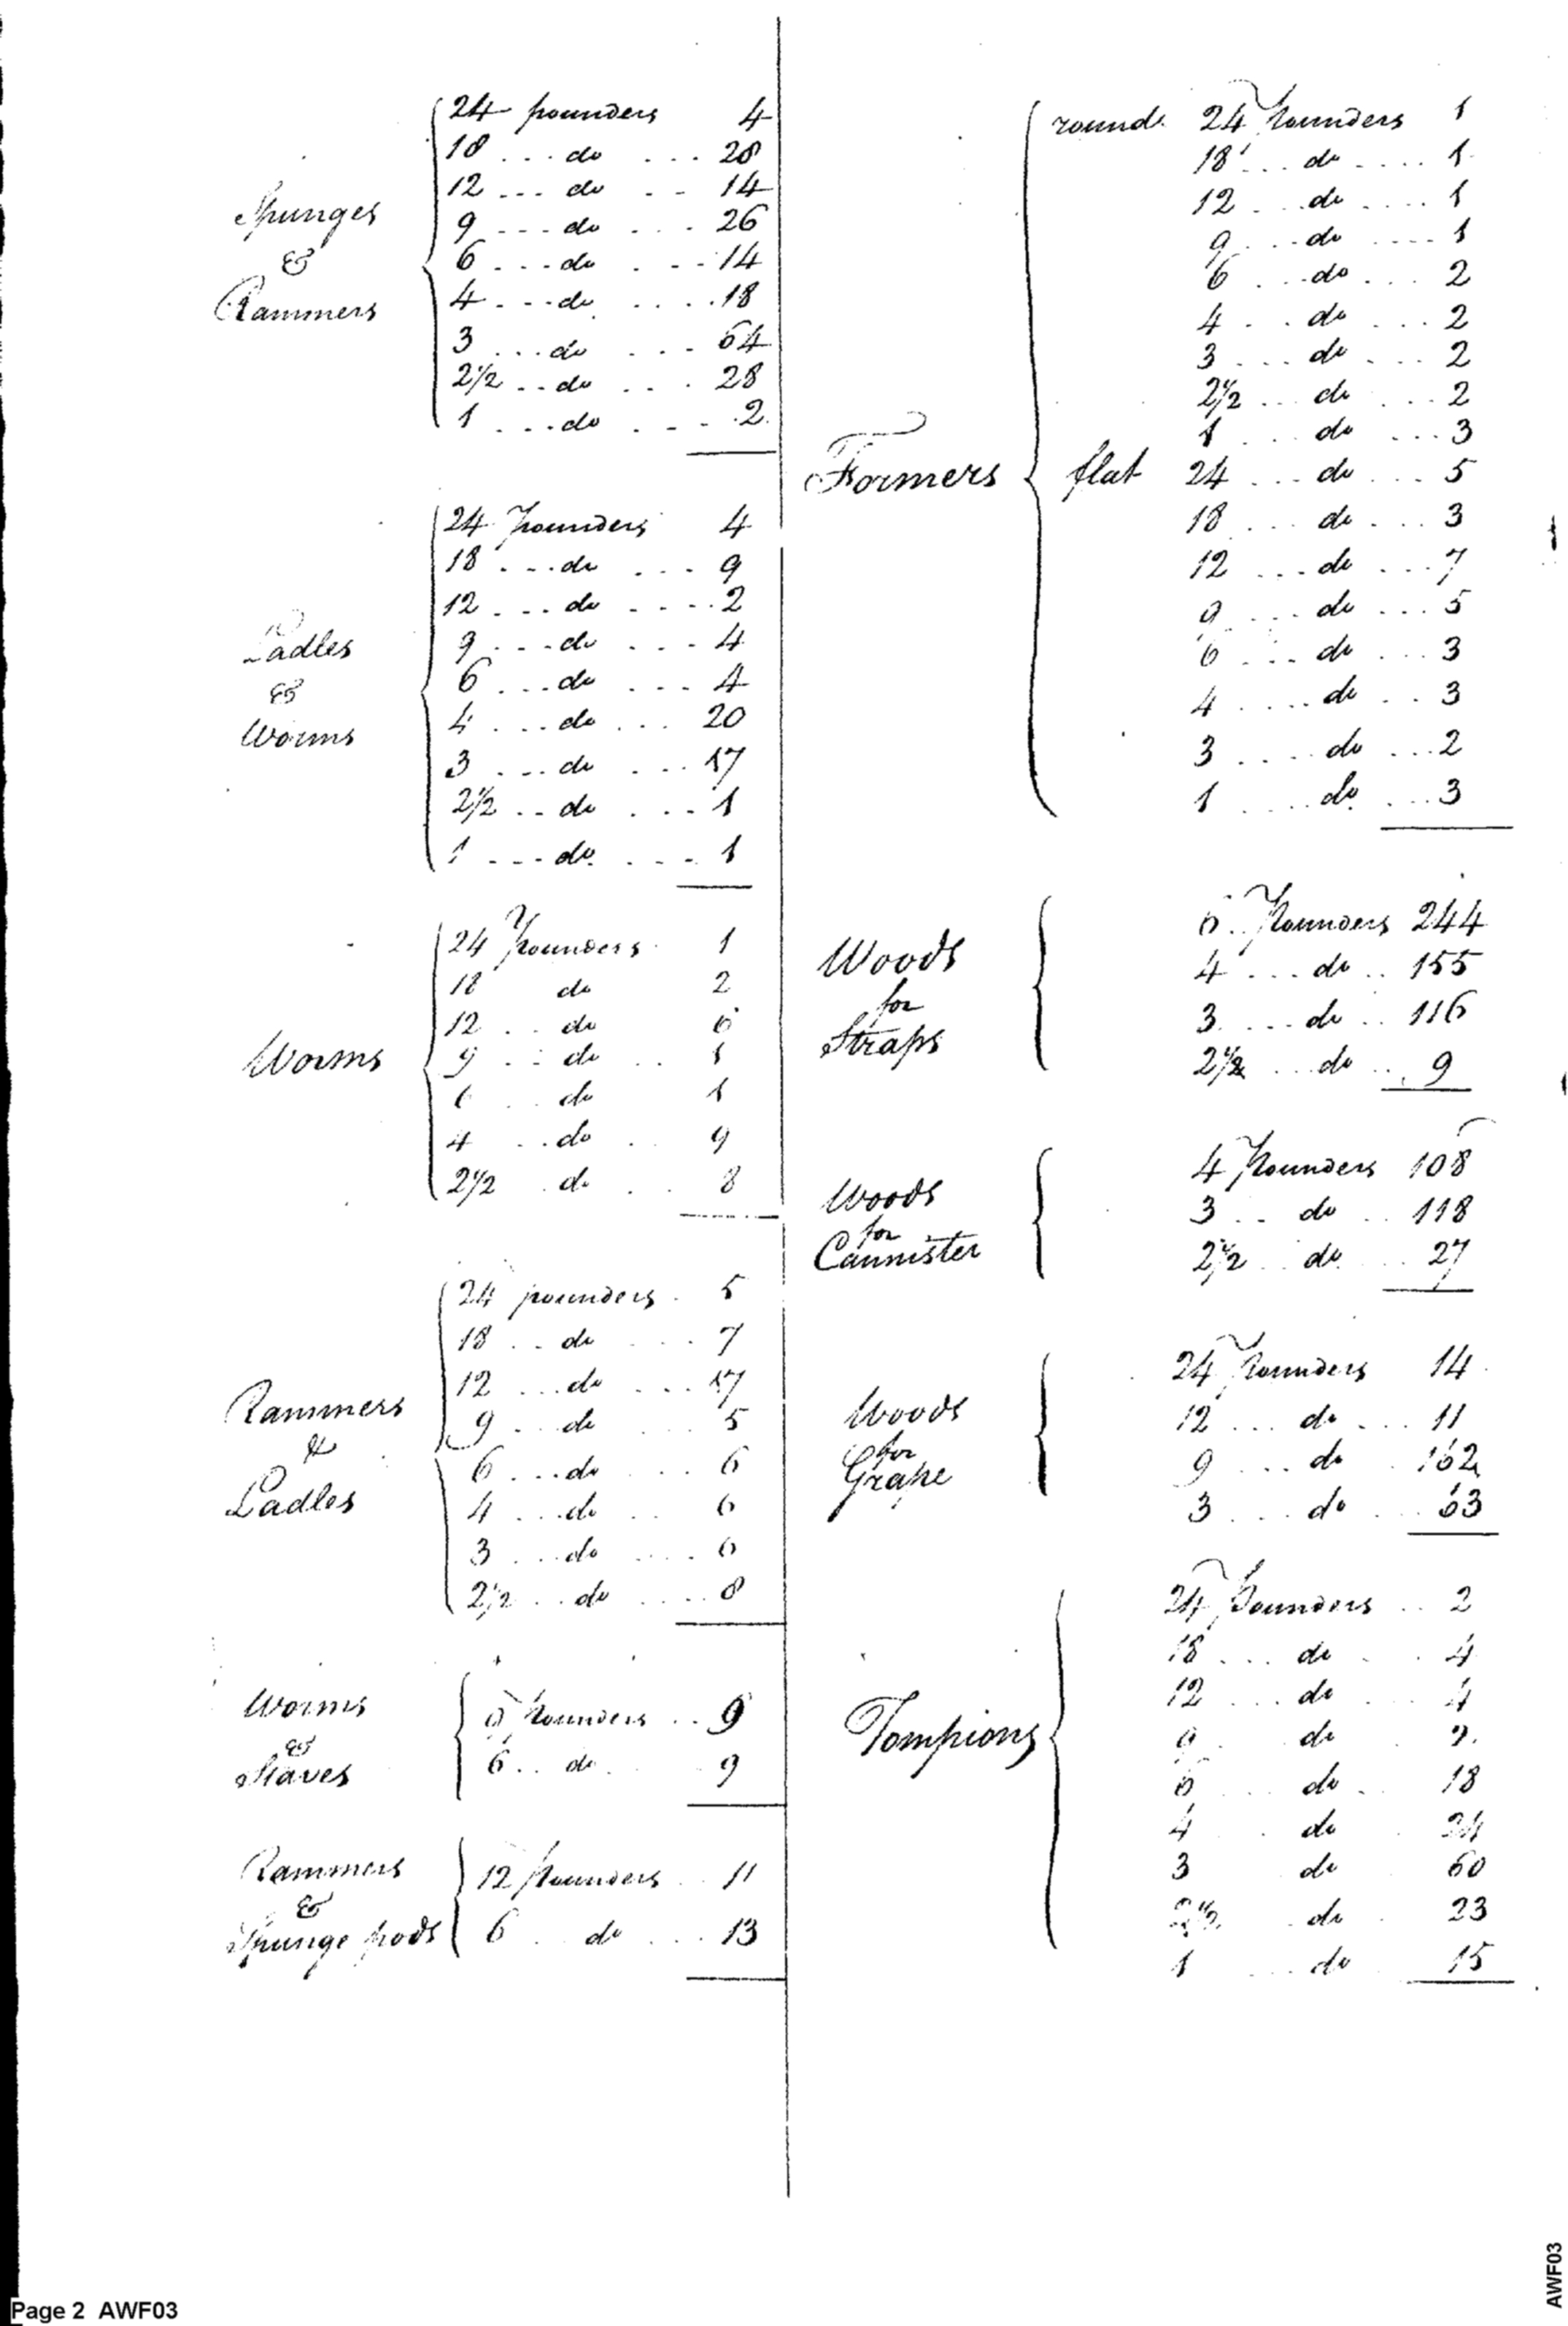 Spunges
&
Rammers
24 pounders 4
18 ... do ... 28
12 ... do .. 14
9 ... do ... 26
6 ... do ... 14
4 ... do .... 18
3 ... do ... 64
2 1/2 .. do ... 28
1 ... do .... 2
Ladles
&
Worms
24 pounders 4
18 ... do ... 9
12 ... do .... 2
9 ... do ... 4
6 ... do ... 4
4 ... do ... 20
3 ... do ... 17
2 1/2 .. do ... 1
1 ... do .... 1
Worms
24 pounders 1
18 do 2
12 .. do 6
9 .. do .. 1
6 .. do 1
4 .. do . 9
2 1/2 . do .. 8
Rammers
&
Ladles
24 pounders . 5
18 .. do ... 7
12 ... do ... 17
9 ... do 5
6 ... do ... 6
4 ... do .. 6
3 ... do .... 6
2 1/2 .. do .... 8
Worms
&
Staves
9 pounders .. 9
6 .. do 9
Rammers
&
Spunge pods
12 pounders .. 11
6 . do ... 13
Formers
round 24 pounders 1
18 ... do .... 1
12 ... do .... 1
9 ... do .... 1
6 .. do ... 2
4 .. do ... 2
3 ... do .... 2
2 1/2 ... do ... 2
1 ... do ... 3
flat 24 ... do ... 5
18 ... do ... 3
12 ... do ... 7
9 ... do ... 5
6 ... do ... 3
4 .... do ... 3
3 .... do ... 2
1 .... do ... 3
Woods
for
Straps
6 .. pounders 244
4 ... do .. 155
3 ... do .. 116
2 1/2 ... do .. 9
Woods
for
Cannister
4 pounders 108
3 .. do .. 118
2 1/2 .. do ... 27
Woods
for
Grape
24 pounders 14
12 ... do ... 11
9 ... do . 162
3 ... do ... 63
Tompions
24 pounders .. 2
18 ... do . 4
12 ... do . 4
9 do 2
6 .. do . 18
4 . do . 24
3 do 60
2 1/2 do . 23
1 ... do 15
Page 2 AWF03
AWF03